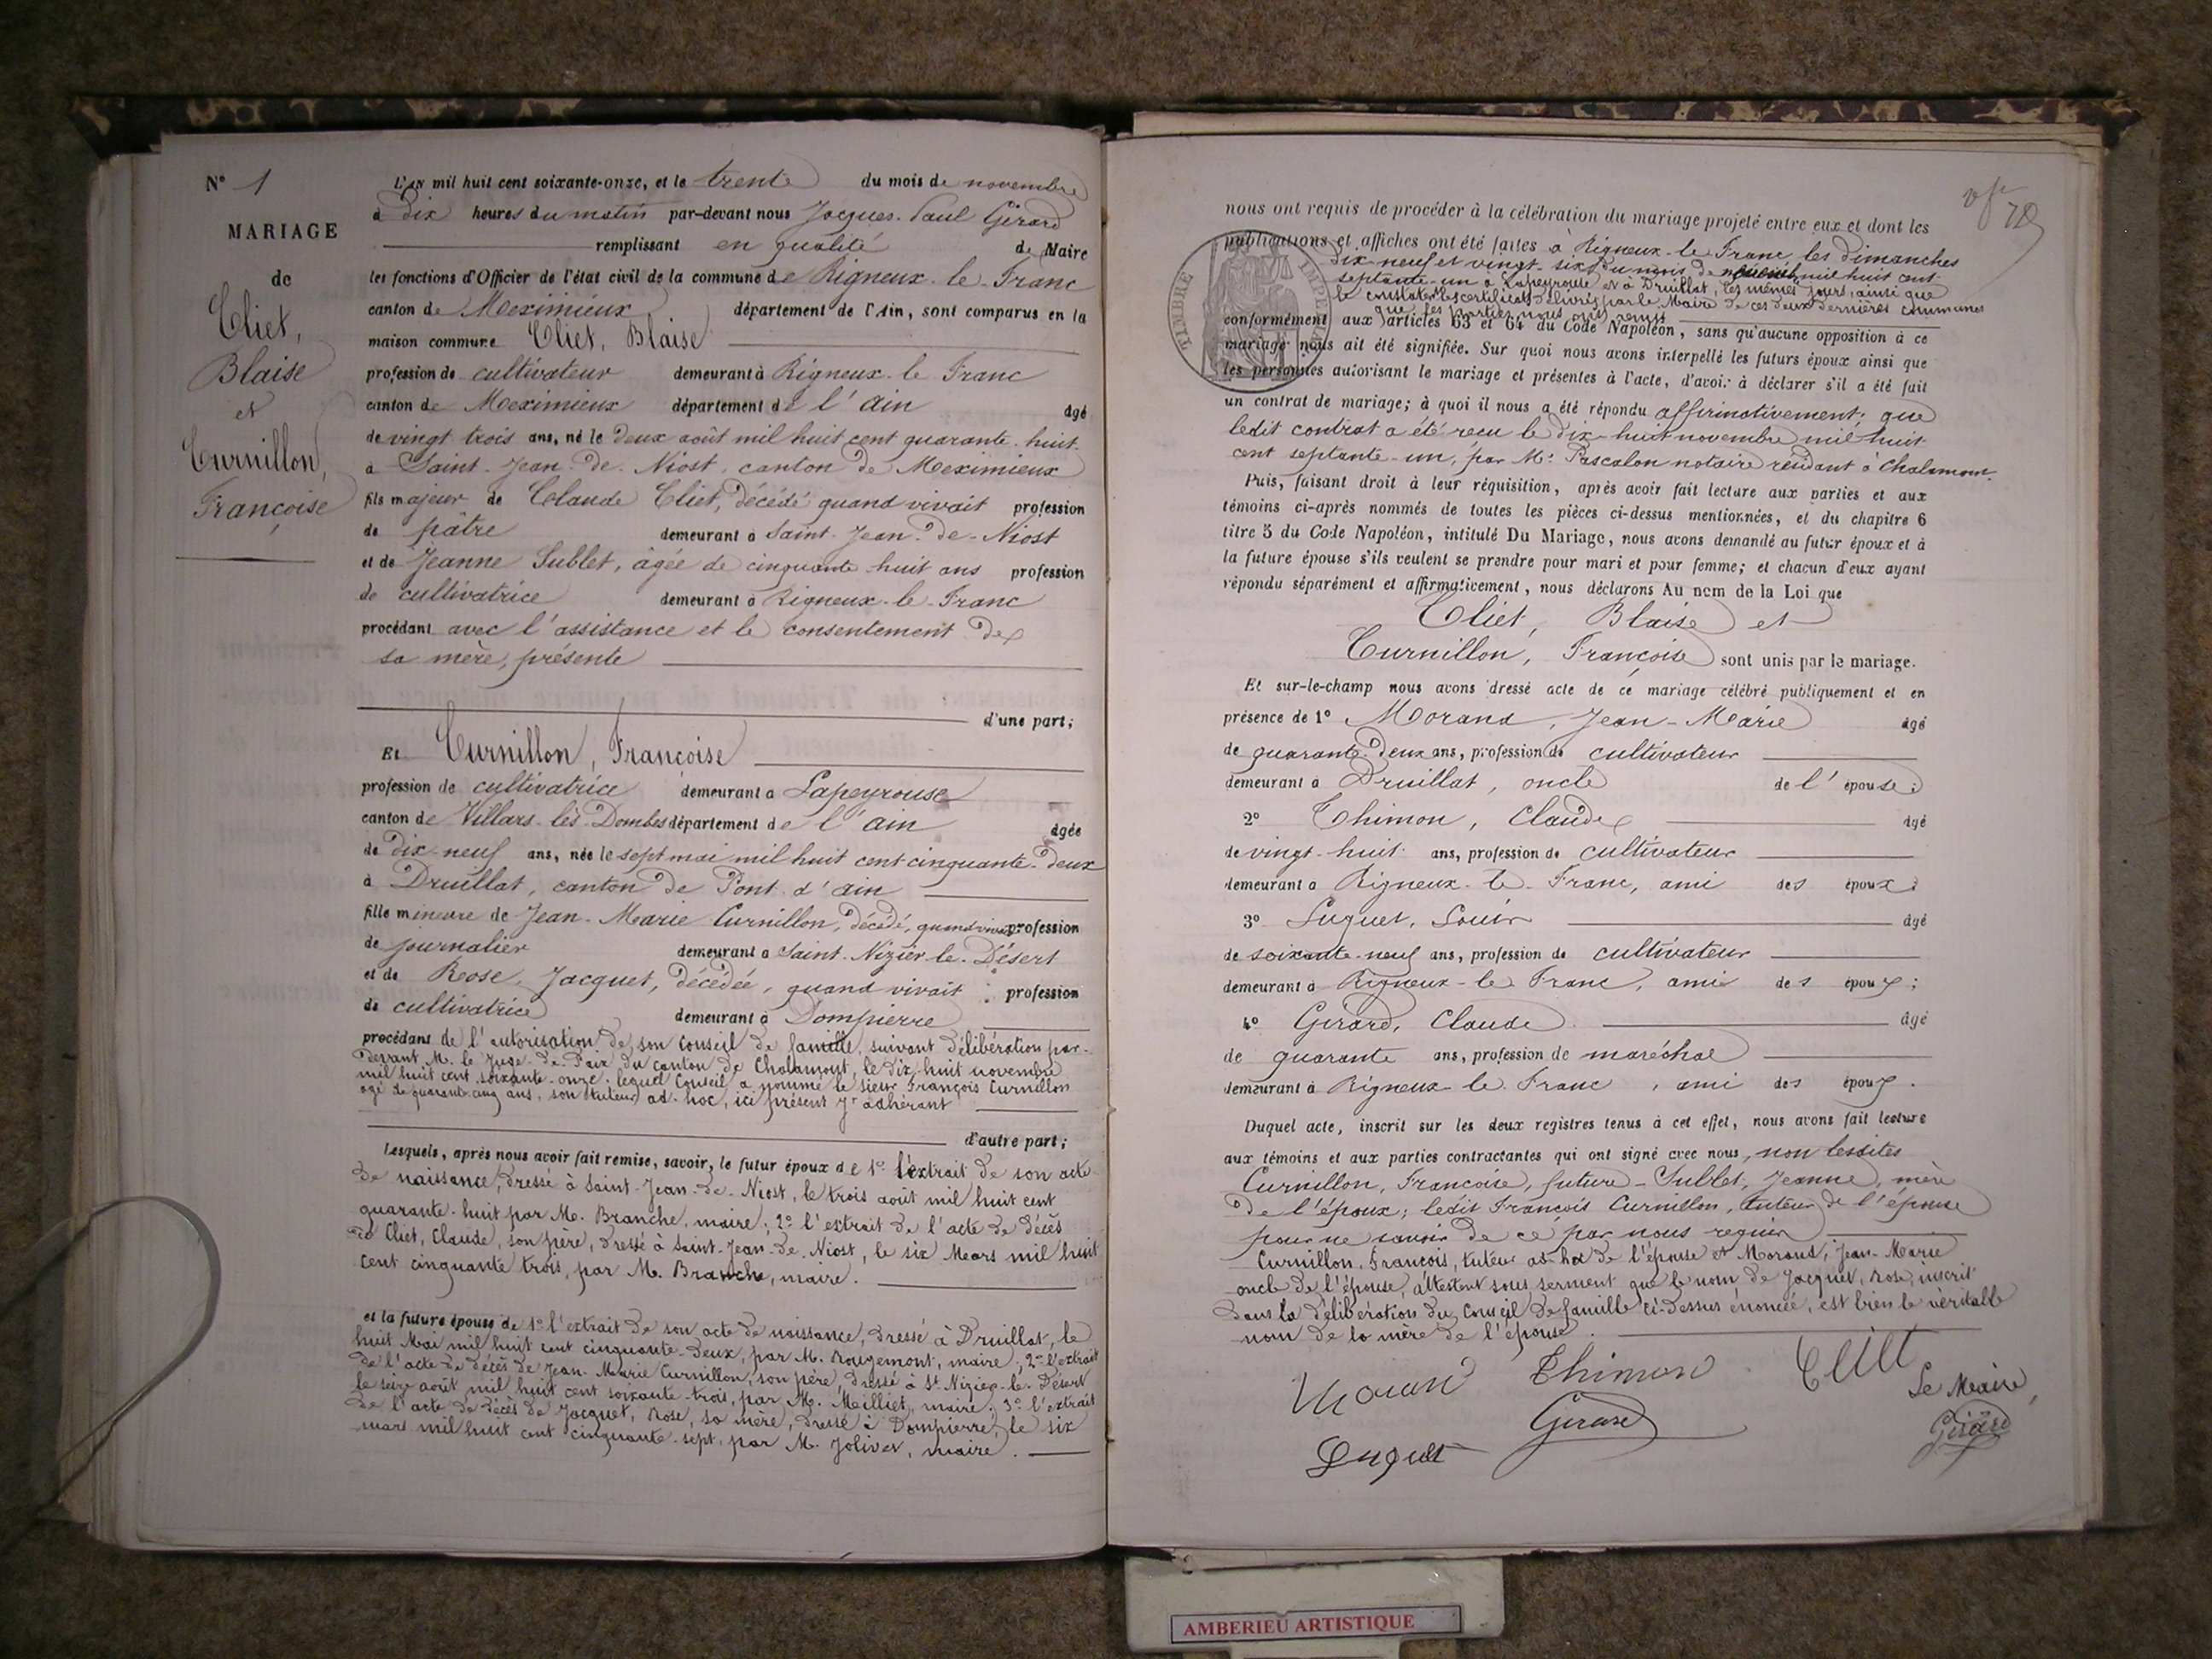 N° 1
MARIAGE
de
Cliet,
Blaise
et
Curnillon,
Françoise
L'AN mil huit cent soixante-onze, et le trente du mois de novembre
à dix heures du matin par-devant nous Jacques-Paul Girard
remplissant en qualité de Maire
les fonctions d'Officier de l'état civil de la commune de Rigneux-le-Franc
canton de Meximieux département de l'Ain, sont comparus en la
maison commune Cliet, Blaise
profession de cultivateur demeurant à Rigneux-le Franc
canton de Meximieux département de l'Ain âgé
de vingt trois ans, né le deux août mil huit cent quarante-huit
à Saint-Jean-de-Niost, canton de Meximieux
fils majeur de Claude Cliet, décédé quand vivait profession
de pâtre demeurant à Saint-Jean-de-Niost
et de Jeanne Sublet, âgée de cinquante huit ans profession
de cultivatrice demeurant à Rigneux-le-Franc
procédant avec l'assistance et le consentement de
sa mère, présente
d'une part;
Et Curnillon, Françoise
profession de cultivatrice demeurant à Lapeyrouse
canton de Villars-les-Dombes département de l'Ain âgée
de dix-neuf ans, née le sept mai mil huit cent cinquante-deux
à Druillat, canton de Pont-d'Ain
fille mineure de Jean-Marie Curnillon, décédé, quand vivait profession
de journalier demeurant à Saint-Nizier-le-Désert
et de Rose Jacquet, décédée, quand vivait profession
de cultivatrice demeurant à Dompierre
procédant de l'autorisation de son conseil de famille, suivant délibération par-
devant M. le Juge-de-Paix du canton de Chalamont, le dix-huit novembre
mil huit cent soixante-onze, lequel Conseil a nommé le sieur François Curnillon
âgé de quarante-cinq ans, son tuteur ad-hoc, ici présent y adhérant
d'autre part;
Lesquels, après nous avoir fait remise, savoir, le futur époux de 1° l'extrait de son acte
de naissance, dressé à Saint-Jean-de-Niost, le trois août mil huit cent
quarante-huit par M. Branche, maire; 2° l'extrait de l'acte de décès
de Cliet, Claude, son père, dressé à Saint-Jean-de-Niost, le six Mars mil huit
cent cinquante trois, par M. Branche, maire.
et la future épouse de 1° l'extrait de son acte de naissance, dressé à Druillat, le
huit Mai mil huit cent cinquante-deux, par M. Rougemont, maire; 2° l'extrait
de l'acte de décès de Jean-Marie Curnillon, son père, dressé à St Nizier-le-Désert
le seize août mil huit cent soixante-trois, par M. Milliet, maire; 3° l'extrait
de l'acte de décès de Jacquet, Rose, sa mère, dressé à Dompierre, le six
mars mil huit cent cinquante-sept, par M. Jolivet, maire.
nous ont requis de procéder à la célébration du mariage projeté entre eux et dont les
publications et affiches ont été faites à Rigneux-le-Franc, les dimanches
dix-neuf et vingt-six du mois de mil huit cent
septante-un à Lapeyrouse et à Druillat, les mêmes jours, ainsi que
le constatent les certificats délivrés par le Maire de ces deux dernières communes
que les parties nous ont remis
conformément aux articles 63 et 64 du Code Napoléon, sans qu'aucune opposition à ce
mariage nous ait été signifiée. Sur quoi nous avons interpellé les futurs époux ainsi que
les personnes autorisant le mariage et présentes à l'acte, d'avoir à déclarer s'il a été fait
un contrat de mariage; à quoi il nous a été répondu affirmativement; que
ledit contrat a été reçu le dix-huit novembre mil huit
cent septante-un, par Me Pascalon notaire résidant à Chalamont.
Puis, faisant droit à leur réquisition, après avoir fait lecture aux parties et aux
témoins ci-après nommés de toutes les pièces ci-dessus mentionnées, et du chapitre 6
titre 5 du Code Napoléon, intitulé Du Mariage, nous avons demandé au futur époux et à
la future épouse s'ils veulent se prendre pour mari et pour femme; et chacun d'eux ayant
répondu séparément et affirmativement, nous déclarons Au nom de la Loi que
Cliet, Blaise et
Curnillon, Françoise sont unis par le mariage.
Et sur-le-champ nous avons dressé acte de ce mariage célébré publiquement et en
présence de 1° Morand, Jean-Marie âgé
de quarante-deux ans, profession de cultivateur
demeurant à Druillat, oncle de l'épouse;
2° Thimon, Claude âgé
de vingt-huit ans, profession de cultivateur
demeurant à Rigneux-le-Franc, ami des époux;
3° Luguet, Louis âgé
de soixante-neuf ans, profession de cultivateur
demeurant à Rigneux-le Franc, ami des époux;
4° Girard, Claude âgé
de quarante ans, profession de maréchal
demeurant à Rigneux-le Franc, ami des époux.
Duquel acte, inscrit sur les deux registres tenus à cet effet, nous avons fait lecture
aux témoins et aux parties contractantes qui ont signé avec nous, non lesdites
Curnillon, Françoise, future - Sublet, Jeanne, mère
de l'époux; ledit François Curnillon, tuteur de l'épouse
pour ne savoir de ce par nous requis
Curnillon, François, tuteur ad-hoc de l'épouse et Morand, Jean-Marie
oncle de l'épouse, attestent sous serment que le nom de Jacquet, Rose, inscrit
dans la délibération du Conseil de famille ci-dessus énoncée, est bien le véritable
nom de la mère de l'épouse.
Morand Thimon Cliet
Le Maire,
Girard
Girard
Luguet
TIMBRE IMPERIAL
AMBERIEU ARTISTIQUE